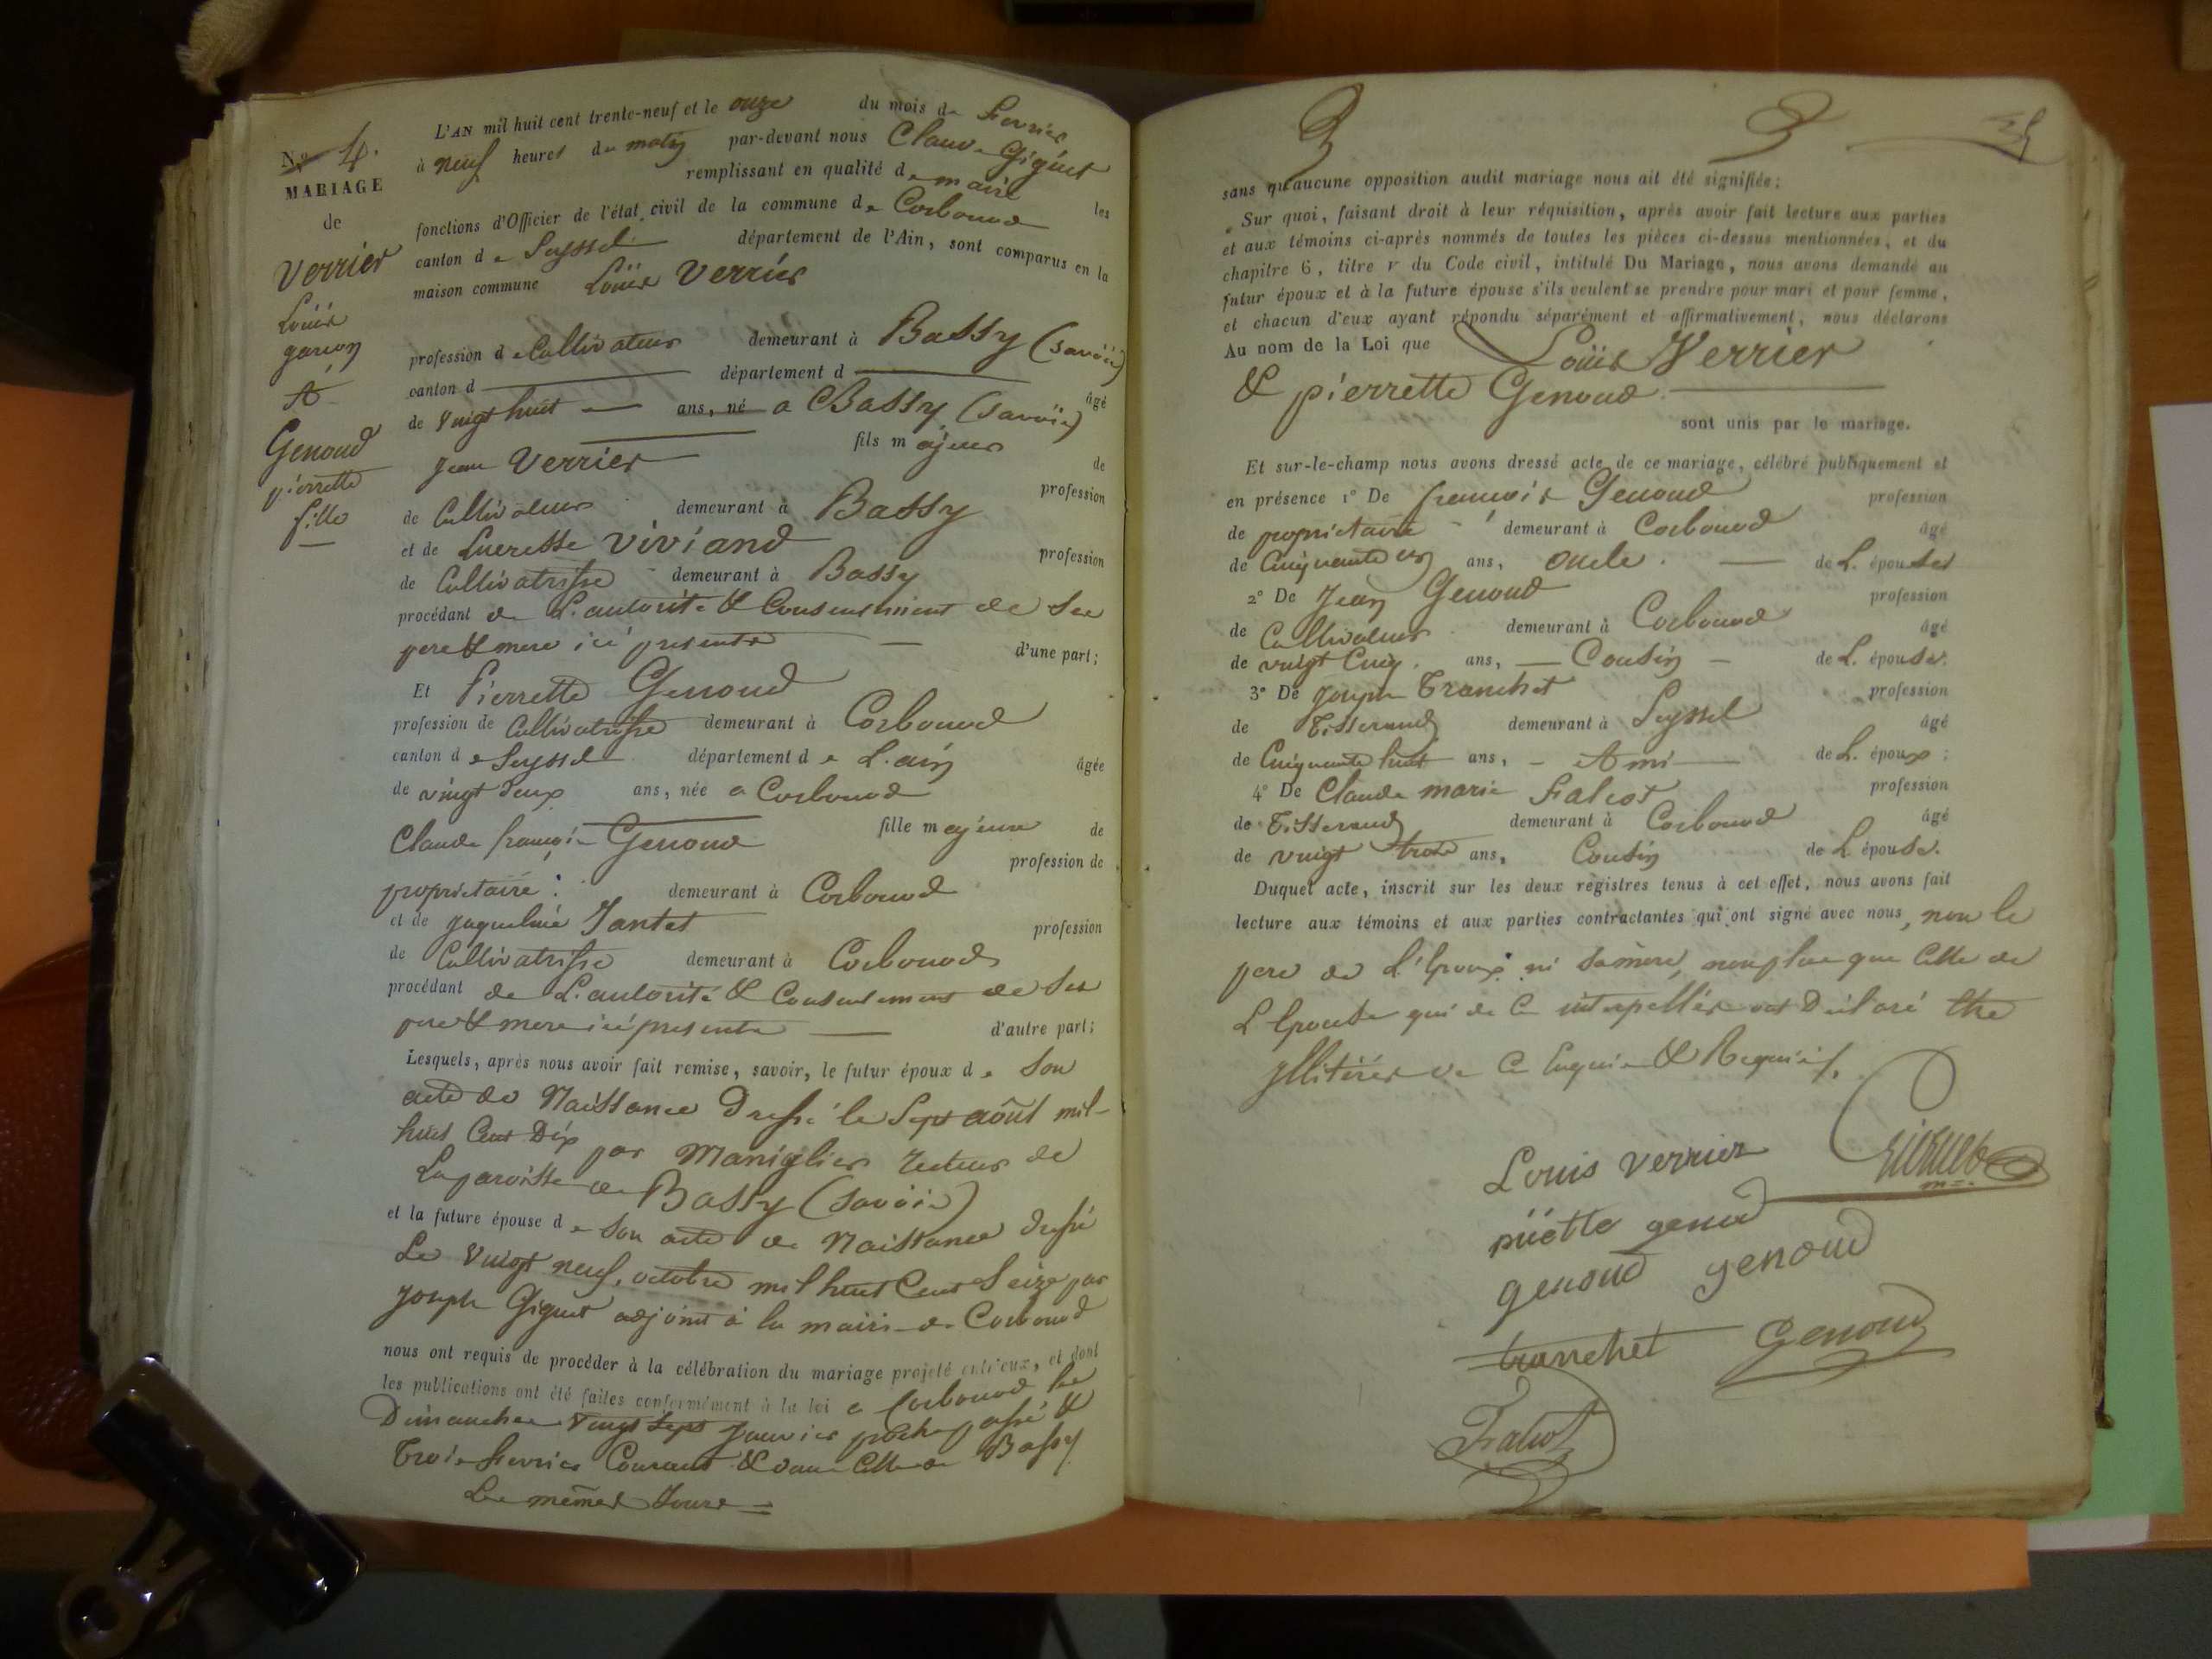 No 4.
MARIAGE
de
Verrier
Loüis
garçon
A
Genoud
pierrette
fille
L'AN mil huit cent trente-neuf et le onze du mois de fevrier
à neuf heures du matin par-devant nous Claude Giguet
remplissant en qualité de maire les
fonctions d'Officier de l'état civil de la commune de Corbonod
canton de Seyssel département de l'Ain, sont comparus en la
maison commune Loüis Verrier
profession de Cultivateur demeurant à Bassy (savoie)
canton d département d âgé
de vingt huit ans, né a Bassy (savoie)
fils majeur de
Jean Verrier profession
de Cultivateur demeurant à Bassy
et de Lucresse Viviand profession
de Cultivatrisse demeurant à Bassy
procédant de L'autorité & Consentement de ses
pere & mere ici presents d'une part;
Et Pierrette Genoud
profession de Cultivatrisse demeurant à Corbonod
canton de Seyssel département de L'ain âgée
de vingt deux ans, née a Corbonod
fille majeure de
Claude françois Genoud profession de
propriétaire demeurant à Corbonod
et de Jaqueline Jantet profession
de Cultivatrisse demeurant à Corbonod
procédant de L'autorité & Consentement de ses
pere & mere ici presents d'autre part;
Lesquels, après nous avoir fait remise, savoir, le futur époux de son
acte de Naissance Dressé le Sept août mil-
huit Cent Dix par Maniglier recteur de
La paroisse de Bassy (savoie)
et la future épouse de son acte de Naissance dressé
Le vingt neuf octobre mil huit Cent Seize par
Joseph Giguet adjoint à la mairie de Corbonod
nous ont requis de procéder à la célébration du mariage projeté entr'eux, et dont
les publications ont été faites conformément à la loi a Corbonod les
Dimanches vingt sept janvier proche passé &
trois fevrier Courant & dans Celle de Bassy
Les mêmes Jours =
sans qu'aucune opposition audit mariage nous ait été signifiée;
Sur quoi, faisant droit à leur réquisition, après avoir fait lecture aux parties
et aux témoins ci-après nommés de toutes les pièces ci-dessus mentionnées, et du
chapitre 6, titre v du Code civil, intitulé Du Mariage, nous avons demandé au
futur époux et à la future épouse s'ils veulent se prendre pour mari et pour femme,
et chacun d'eux ayant répondu séparément et affirmativement, nous déclarons
Au nom de la Loi que Loüis Verrier
& pierrette Genoud
sont unis par le mariage.
Et sur-le-champ nous avons dressé acte de ce mariage, célébré publiquement et
en présence 1° De françois Genoud profession
de propriétaire demeurant à Corbonod âgé
de Cinquante un ans, oncle de L'épouse
2° De Jean Genoud profession
de Cultivateur demeurant à Corbonod âgé
de vingt Cinq ans, Cousin de L'épouse.
3° De Joseph Tranchet profession
de Tisserand demeurant à Seyssel âgé
de Cinquante huit ans, Ami de L'époux;
4° De Claude marie Falcot profession
de Tisserand demeurant à Corbonod âgé
de vingt trois ans, Cousin de L'épouse.
Duquel acte, inscrit sur les deux registres tenus à cet effet, nous avons fait
lecture aux témoins et aux parties contractantes qui ont signé avec nous, non le
pere de L'Epoux ni sa mère, non plus que Celle de
L'Epouse qui de Ce interpellés ont Déclaré Etre
jllitérés de Ce Enquis & Requis.
Louis verrier
Giguet
genoud genoud
tranchet Genoud
Falcot